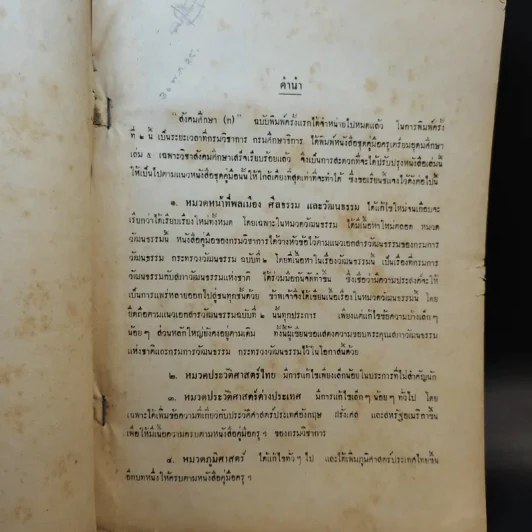 คำนำ
"สังคมศึกษา (ก)" ฉบับพิมพ์ครั้งแรกได้จำหน่ายไปหมดแล้ว ในการพิมพ์ครั้ง
ที่ ๒ นี้ เป็นระยะเวลาที่กรมวิชาการ กระทรวงศึกษาธิการ ได้พิมพ์หนังสือชุดคู่มือครูเตรียมอุดมศึกษา
เล่ม ๕ เฉพาะวิชาสังคมศึกษาเสร็จเรียบร้อยแล้ว จึงเป็นการสะดวกที่จะได้ปรับปรุงหนังสือเล่มนี้
ให้เป็นไปตามแนวหนังสือชุดคู่มือนั้นให้ใกล้เคียงที่สุดเท่าที่จะทำได้ ซึ่งขอเรียนชี้แจงไว้ดังต่อไปนี้
๑. หมวดหน้าที่พลเมือง ศีลธรรม และวัฒนธรรม ได้แก้ไขใหม่จนเกือบจะ
เรียกว่าได้เรียบเรียงใหม่ทั้งหมด โดยเฉพาะในหมวดวัฒนธรรม ได้มีเนื้อหาใหม่ตลอด หมวด
วัฒนธรรมนี้ หนังสือคู่มือของกรมวิชาการได้วางหัวข้อไว้ตามแนวเอกสารวัฒนธรรมของกรมการ
วัฒนธรรม กระทรวงวัฒนธรรม ฉบับที่ ๒ โดยที่เนื้อหาในเรื่องวัฒนธรรมนี้ เป็นเรื่องที่กรมการ
วัฒนธรรมกับสภาวัฒนธรรมแห่งชาติ ได้ร่วมมือกันจัดทำขึ้น ซึ่งเชื่อว่ามีความประสงค์จะให้
เป็นการแพร่หลายออกไปสู่ชนทุกชั้นด้วย ข้าพเจ้าจึงได้เขียนเนื้อเรื่องในหมวดวัฒนธรรมนี้ โดย
ยึดถือตามแนวเอกสารวัฒนธรรมฉบับที่ ๒ นั้นทุกประการ เพียงแต่แก้ไขข้อความบ้างเล็กๆ
น้อยๆ ส่วนหลักใหญ่ยังคงอยู่ตามเดิม ทั้งนี้ผู้เขียนขอแสดงความขอบพระคุณสภาวัฒนธรรม
แห่งชาติและกรมการวัฒนธรรม กระทรวงวัฒนธรรมไว้ในโอกาสนี้ด้วย
๒. หมวดประวัติศาสตร์ไทย มีการแก้ไขเพียงเล็กน้อยในประการที่ไม่สำคัญนัก
๓. หมวดประวัติศาสตร์ต่างประเทศ มีการแก้ไขเล็กๆ น้อยๆ ทั่วไป โดย
เฉพาะได้เพิ่มข้อความที่เกี่ยวกับประวัติศาสตร์ประเทศอังกฤษ ฝรั่งเศส และสหรัฐอเมริกาขึ้น
เพื่อให้มีเนื้อความครบตามหนังสือคู่มือครู ฯ ของกรมวิชาการ
๔. หมวดภูมิศาสตร์ ได้แก้ไขทั่วๆ ไป และได้เพิ่มภูมิศาสตร์ประเทศไทยขึ้น
อีกบทหนึ่งให้ครบตามหนังสือคู่มือครู ฯ